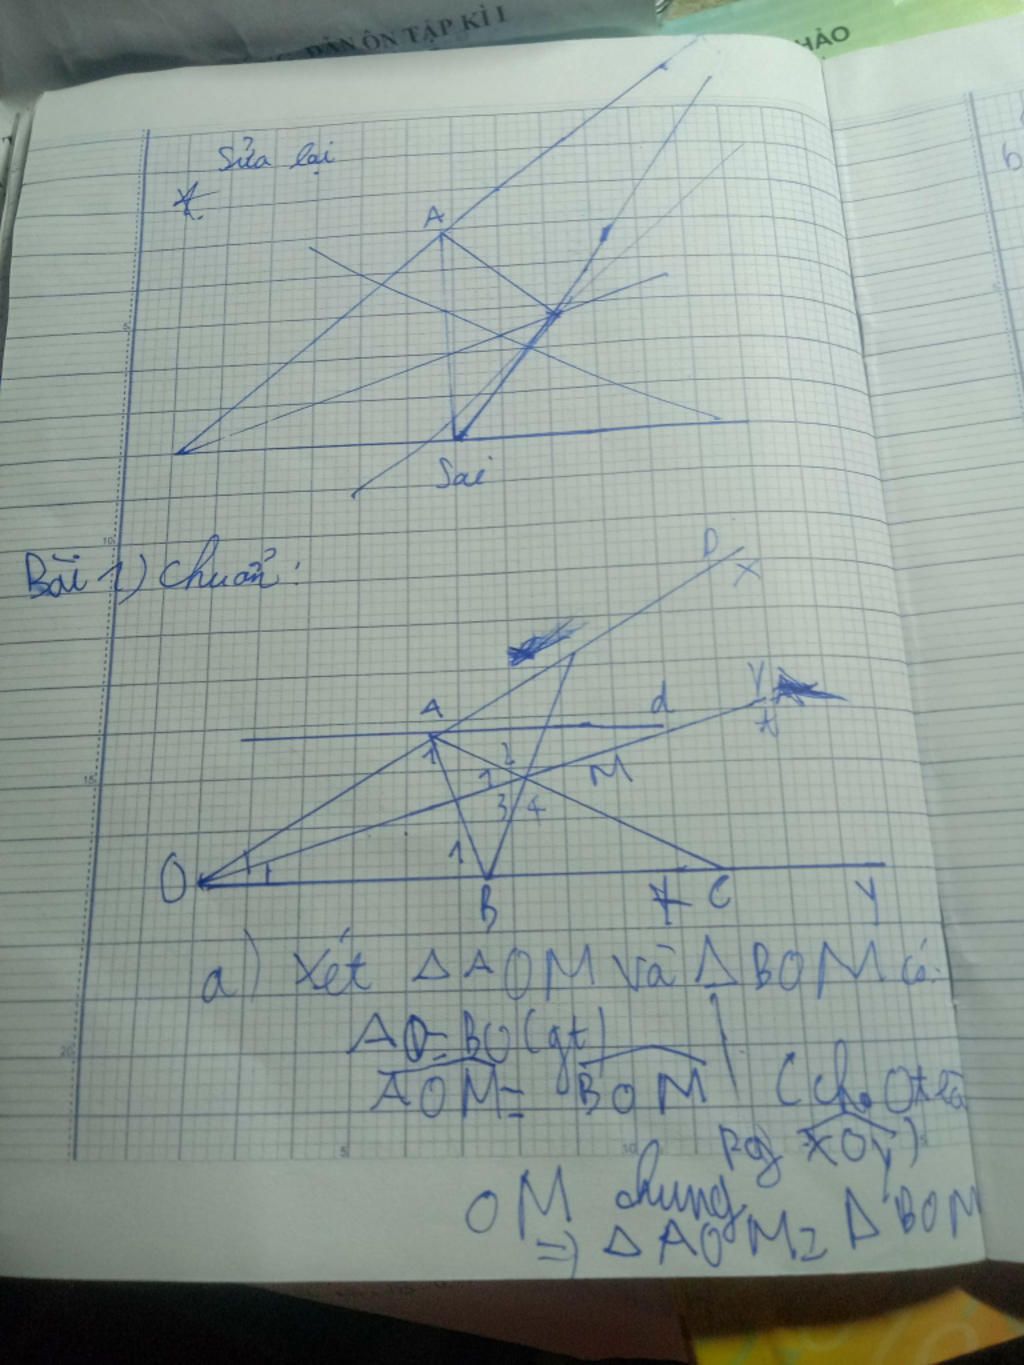 DẪN ÔN TẬP KÌ I
HẢO
Sửa lại
A
Sai
Bài 1) chuẩn:
D
x
A
d
t
1
2
1
M
3
4
1
O
1
B
C
y
a) Xét Δ AOM và Δ BOM có:
AO = BO (gt)
AOM = BOM (cho Ot là
pg xOy)
OM chung
=> Δ AOM = Δ BOM
5
10
15
20
5
10
15
b